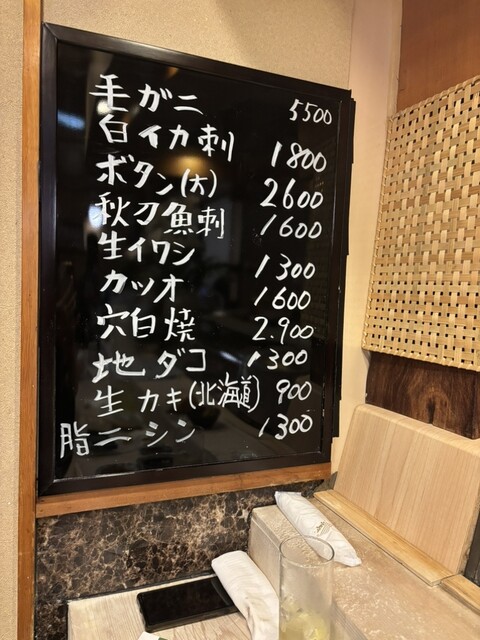 毛がニ 5500
白イカ刺 1800
ボタン(大) 2600
秋刀魚刺 1600
生イワシ 1300
カツオ 1600
穴白焼 2.900
地ダコ 1300
生カキ(北海道) 900
脂ニシン 1300